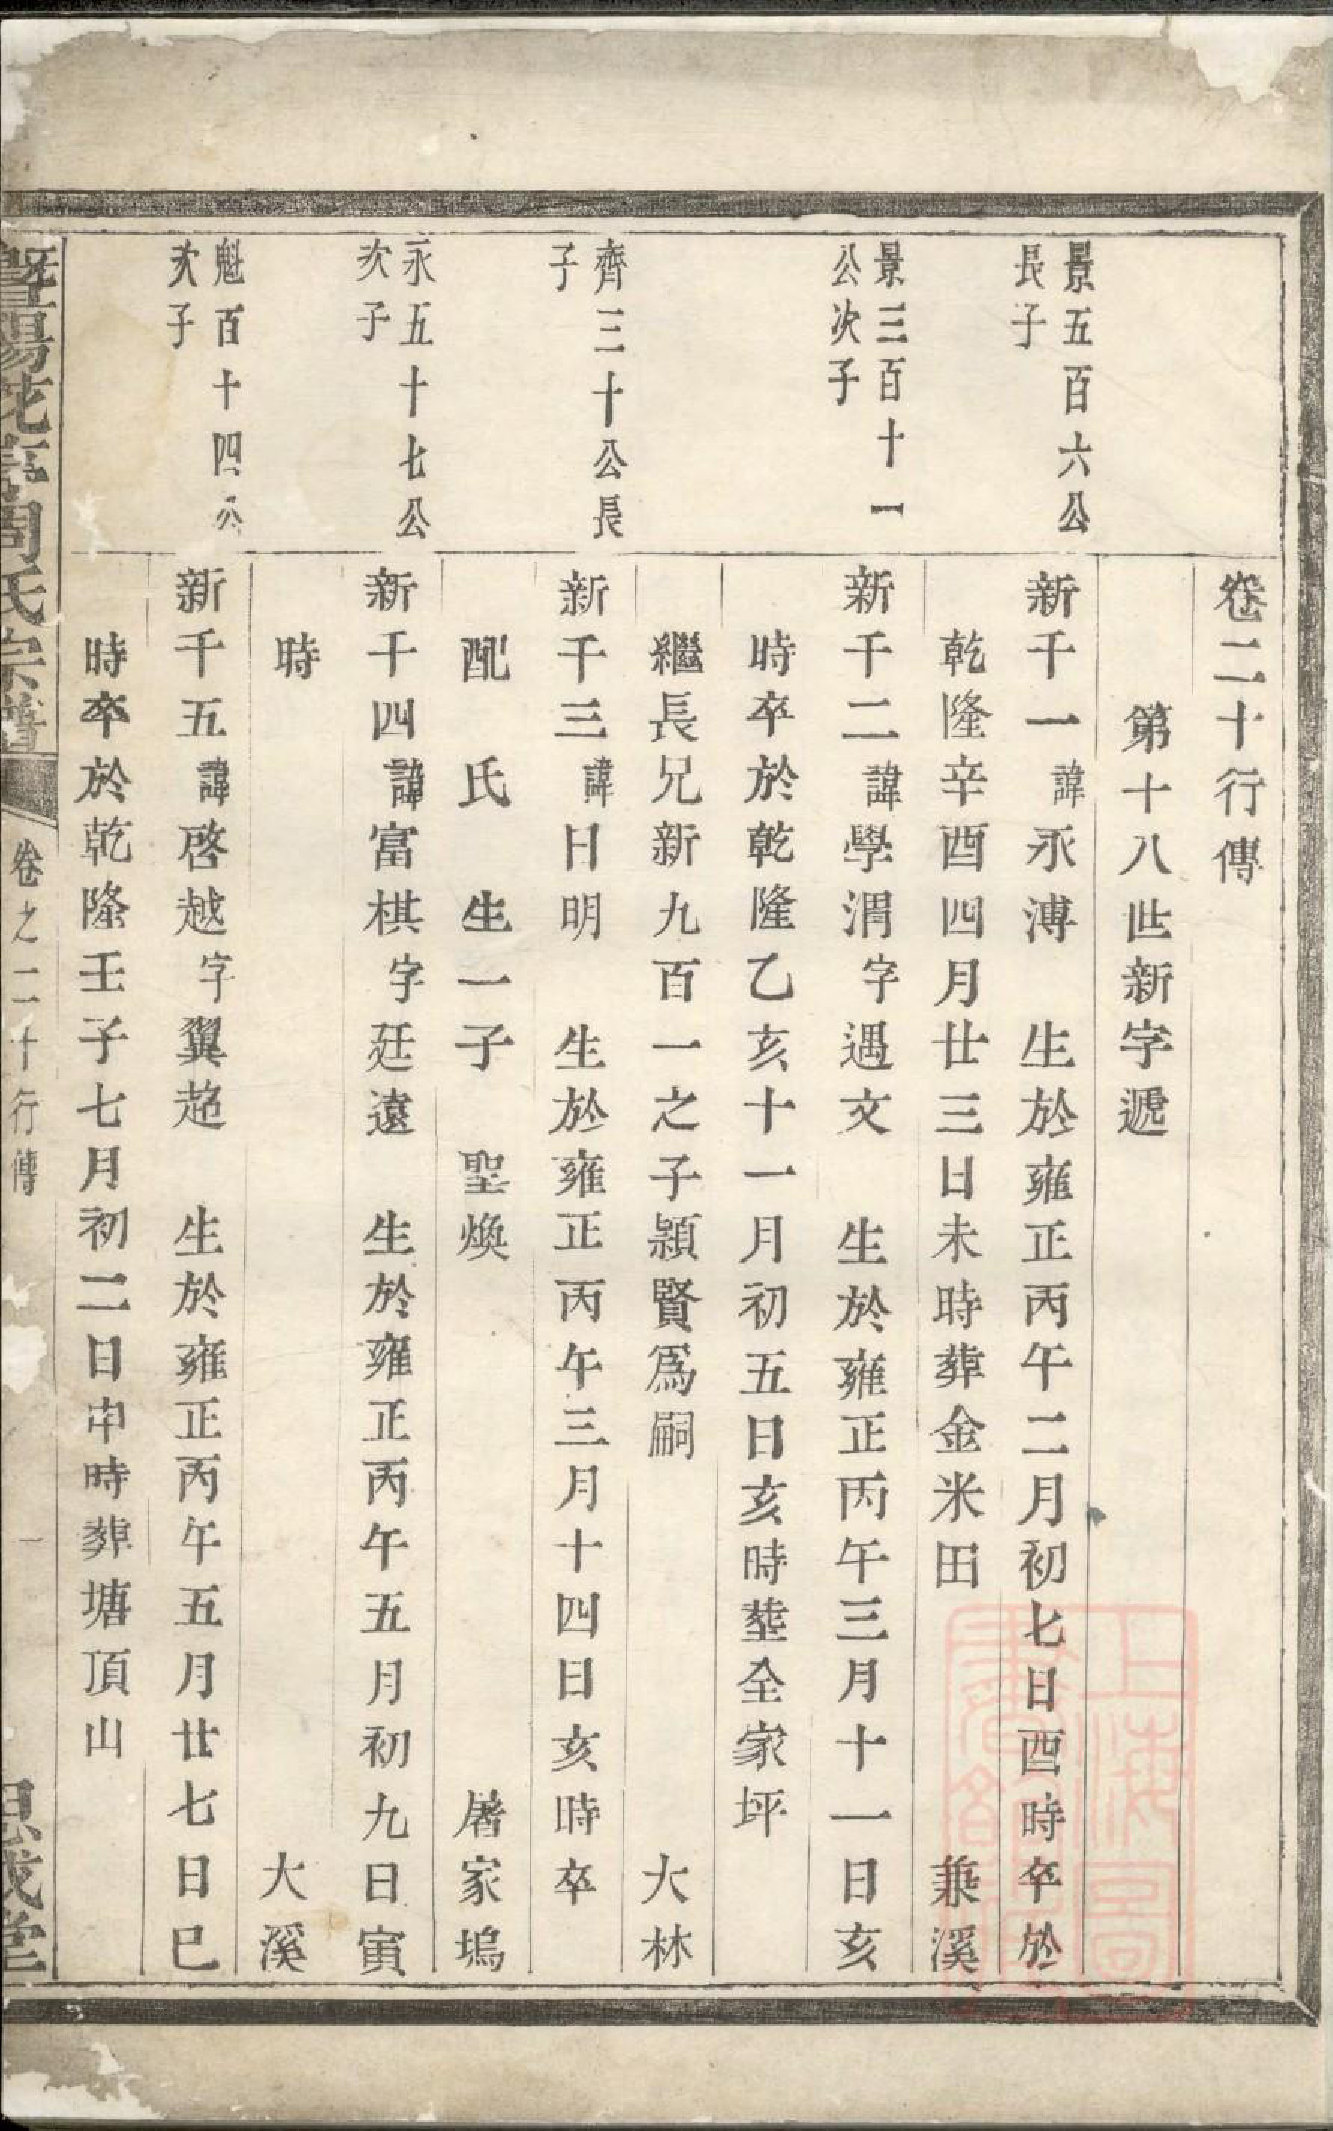 卷二十行傳
第十八世新字遞
景五百六公
長子
新千一諱永溥　生於雍正丙午二月初七日酉時卒於
乾隆辛酉四月廿三日未時葬金米田　兼溪
景三百十一
公次子
新千二諱學渭字遇文　生於雍正丙午三月十一日亥
時卒於乾隆乙亥十一月初五日亥時塟全家坪
繼長兄新九百一之子顯賢爲嗣　大林
齊三十公長
子
新千三諱日明　生於雍正丙午三月十四日亥時卒
配　氏　生一子　聖煥　屠家塢
永五十七公
次子
新千四諱富棋字廷遠　生於雍正丙午五月初九日寅
時　大溪
魁百十四公
次子
新千五諱啓越字翼超　生於雍正丙午五月廿七日巳
時卒於乾隆壬子七月初二日申時葬塘頂山
暨陽花亭周氏宗譜　卷之二十行傳　一　思成堂
上海圖書館藏